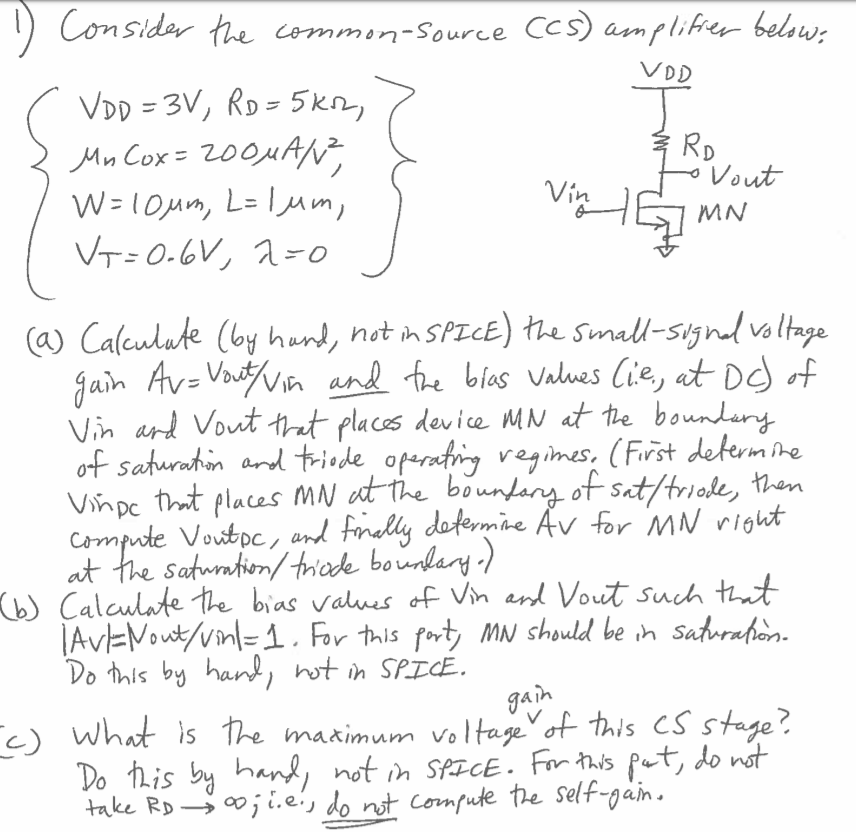 1) Consider the common-source (CS) amplifier below:
VDD
VDD = 3V, RD = 5kΩ,
RD
Vout
μnCox = 200μA/V²,
Vin
MN
W = 10μm, L = 1μm,
VT = 0.6V, λ = 0
(a) Calculate (by hand, not in SPICE) the small-signal voltage
gain Av = Vout/Vin and the bias values (i.e., at DC) of
Vin and Vout that places device MN at the boundary
of saturation and triode operating regimes. (First determine
VinDC that places MN at the boundary of sat/triode, then
compute VoutDC, and finally determine Av for MN right
at the saturation/triode boundary.)
(b) Calculate the bias values of Vin and Vout such that
|Av|=|Vout/Vin|=1. For this part, MN should be in saturation.
Do this by hand, not in SPICE.
gain
(c) What is the maximum voltage ˅ of this CS stage?
Do this by hand, not in SPICE. For this part, do not
take RD → ∞; i.e., do not compute the self-gain.